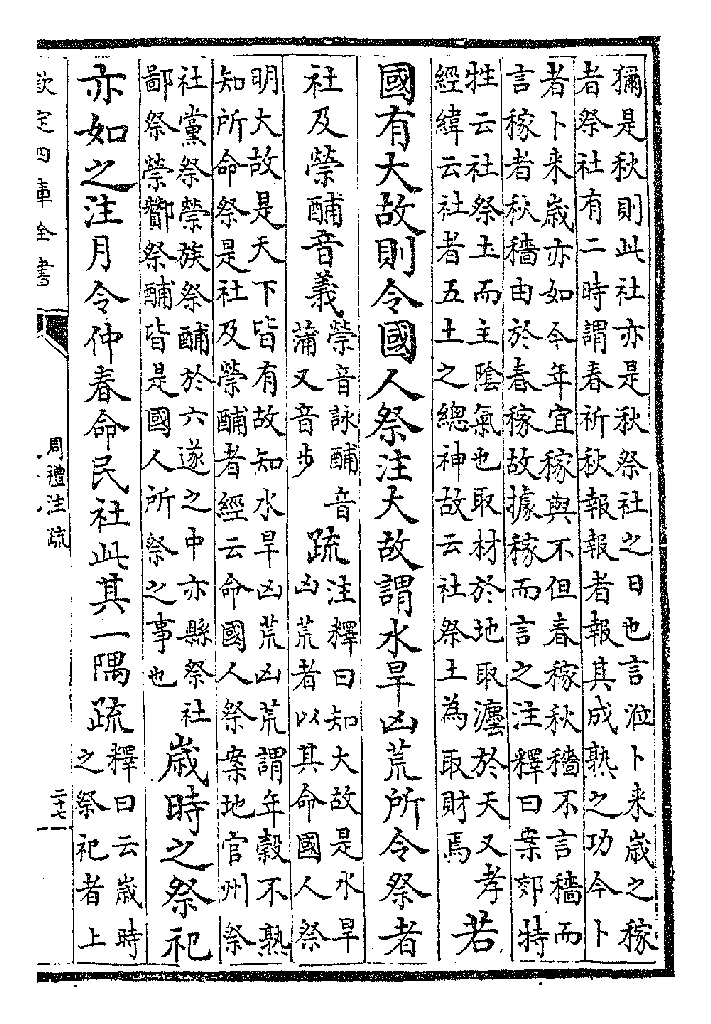 獮是秋則此社亦是秋祭社之日也言涖卜来歳之稼
者祭社有二時謂春祈秋報報者報其成熟之功今卜
者卜来歳亦如今年宜稼與不但春稼秋穡不言穡而
言稼者秋穡由於春稼故據稼而言之注釋曰案郊特
牲云社祭土而主隂氣也取材於地取灋於天又孝
經緯云社者五土之總神故云社祭土為取財焉
若
國有大故則令國人祭注大故謂水旱凶荒所令祭者
社及禜酺音義
禜音詠酺音
蒲又音步
疏
注釋曰知大故是水旱
凶荒者以其命國人祭
明大故是天下皆有故知水旱凶荒凶荒謂年穀不熟
知所命祭是社及禜酺者經云命國人祭案地官州祭
社黨祭禜族祭酺於六遂之中亦縣祭社
鄙祭禜酇祭酺皆是國人所祭之事也
歳時之祭祀
亦如之注月令仲春命民社此其一隅疏
釋曰云歳時
之祭祀者上
欽定四庫全書
周禮注疏
二十七